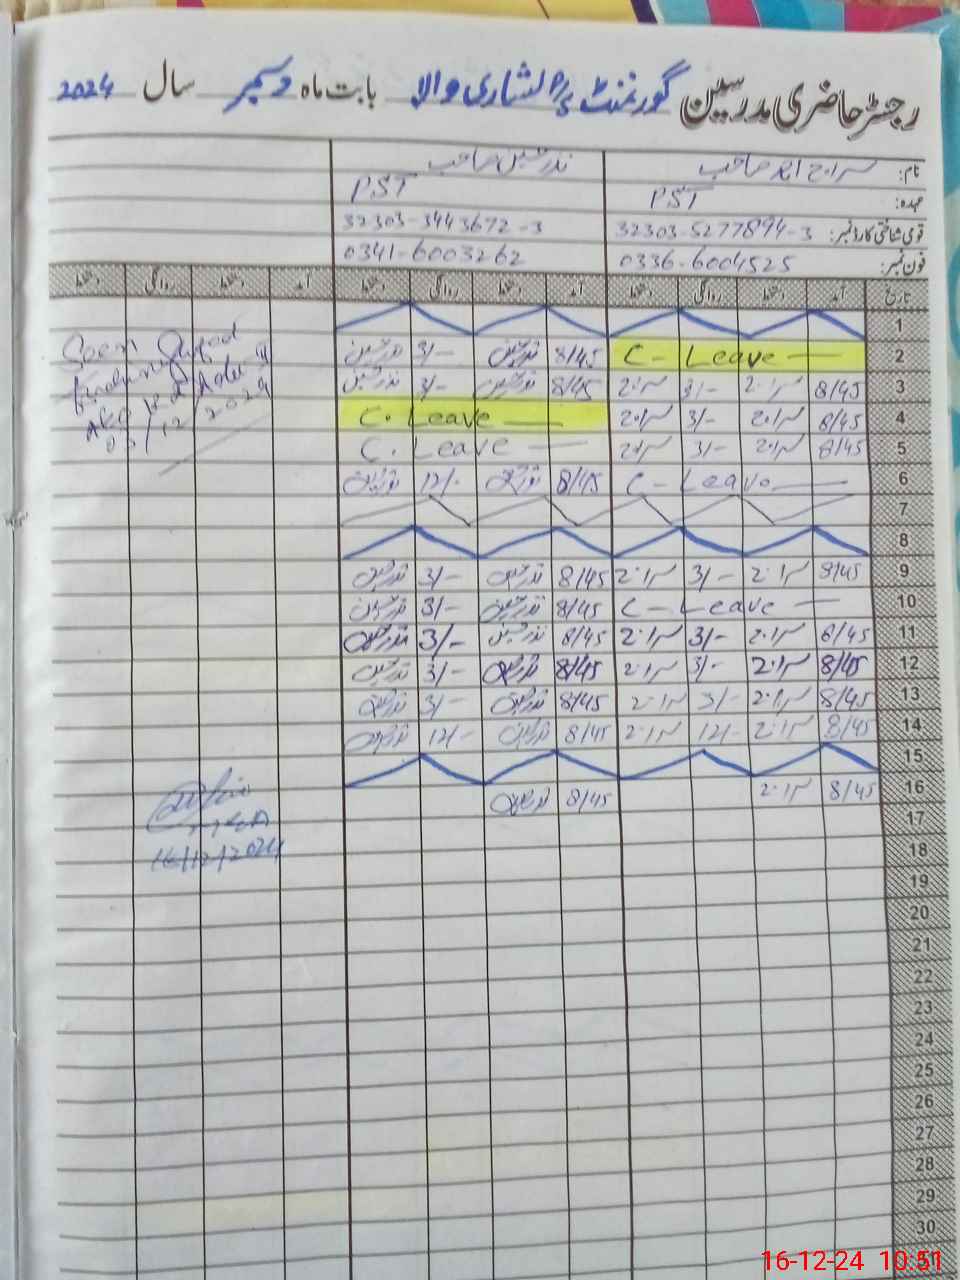 رجسٹر حاضری مدرسین گورنمنٹ پ/س لشاری والا بابت ماہ دسمبر سال 2024
نام: سراج احمد صاحب نذر حسین صاحب
عہدہ: PST PST
قومی شناختی کارڈ نمبر: 32303-5277894-3 32303-3443672-3
فون نمبر: 0336-6004525 0341-6003262
تاریخ آمد دستخط روانگی دستخط آمد دستخط روانگی دستخط آمد دستخط روانگی دستخط
1
2 C - Leave 8/45 نذر حسین 3/- نذر حسین
3 8/45 سراج 3/- سراج 8/45 نذر حسین 3/- نذر حسین
4 8/45 سراج 3/- سراج C. Leave
5 8/45 سراج 3/- سراج C. Leave
6 C - Leave 8/45 نذر حسین 12/- نذر حسین
7
8
9 8/45 سراج 3/- سراج 8/45 نذر حسین 3/- نذر حسین
10 C - Leave 8/45 نذر حسین 3/- نذر حسین
11 8/45 سراج 3/- سراج 8/45 نذر حسین 3/- نذر حسین
12 8/45 سراج 3/- سراج 8/45 نذر حسین 3/- نذر حسین
13 8/45 سراج 3/- سراج 8/45 نذر حسین 3/- نذر حسین
14 8/45 سراج 12/- سراج 8/45 نذر حسین 12/- نذر حسین
15
16 8/45 سراج 8/45 نذر حسین
17
18
19
20
21
22
23
24
25
26
27
28
29
30
Seen
03/12/2024
16/12/2024
16-12-24 10:51